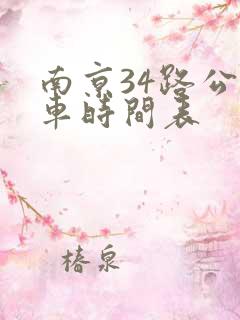 南京34路公
車時間表
椿泉